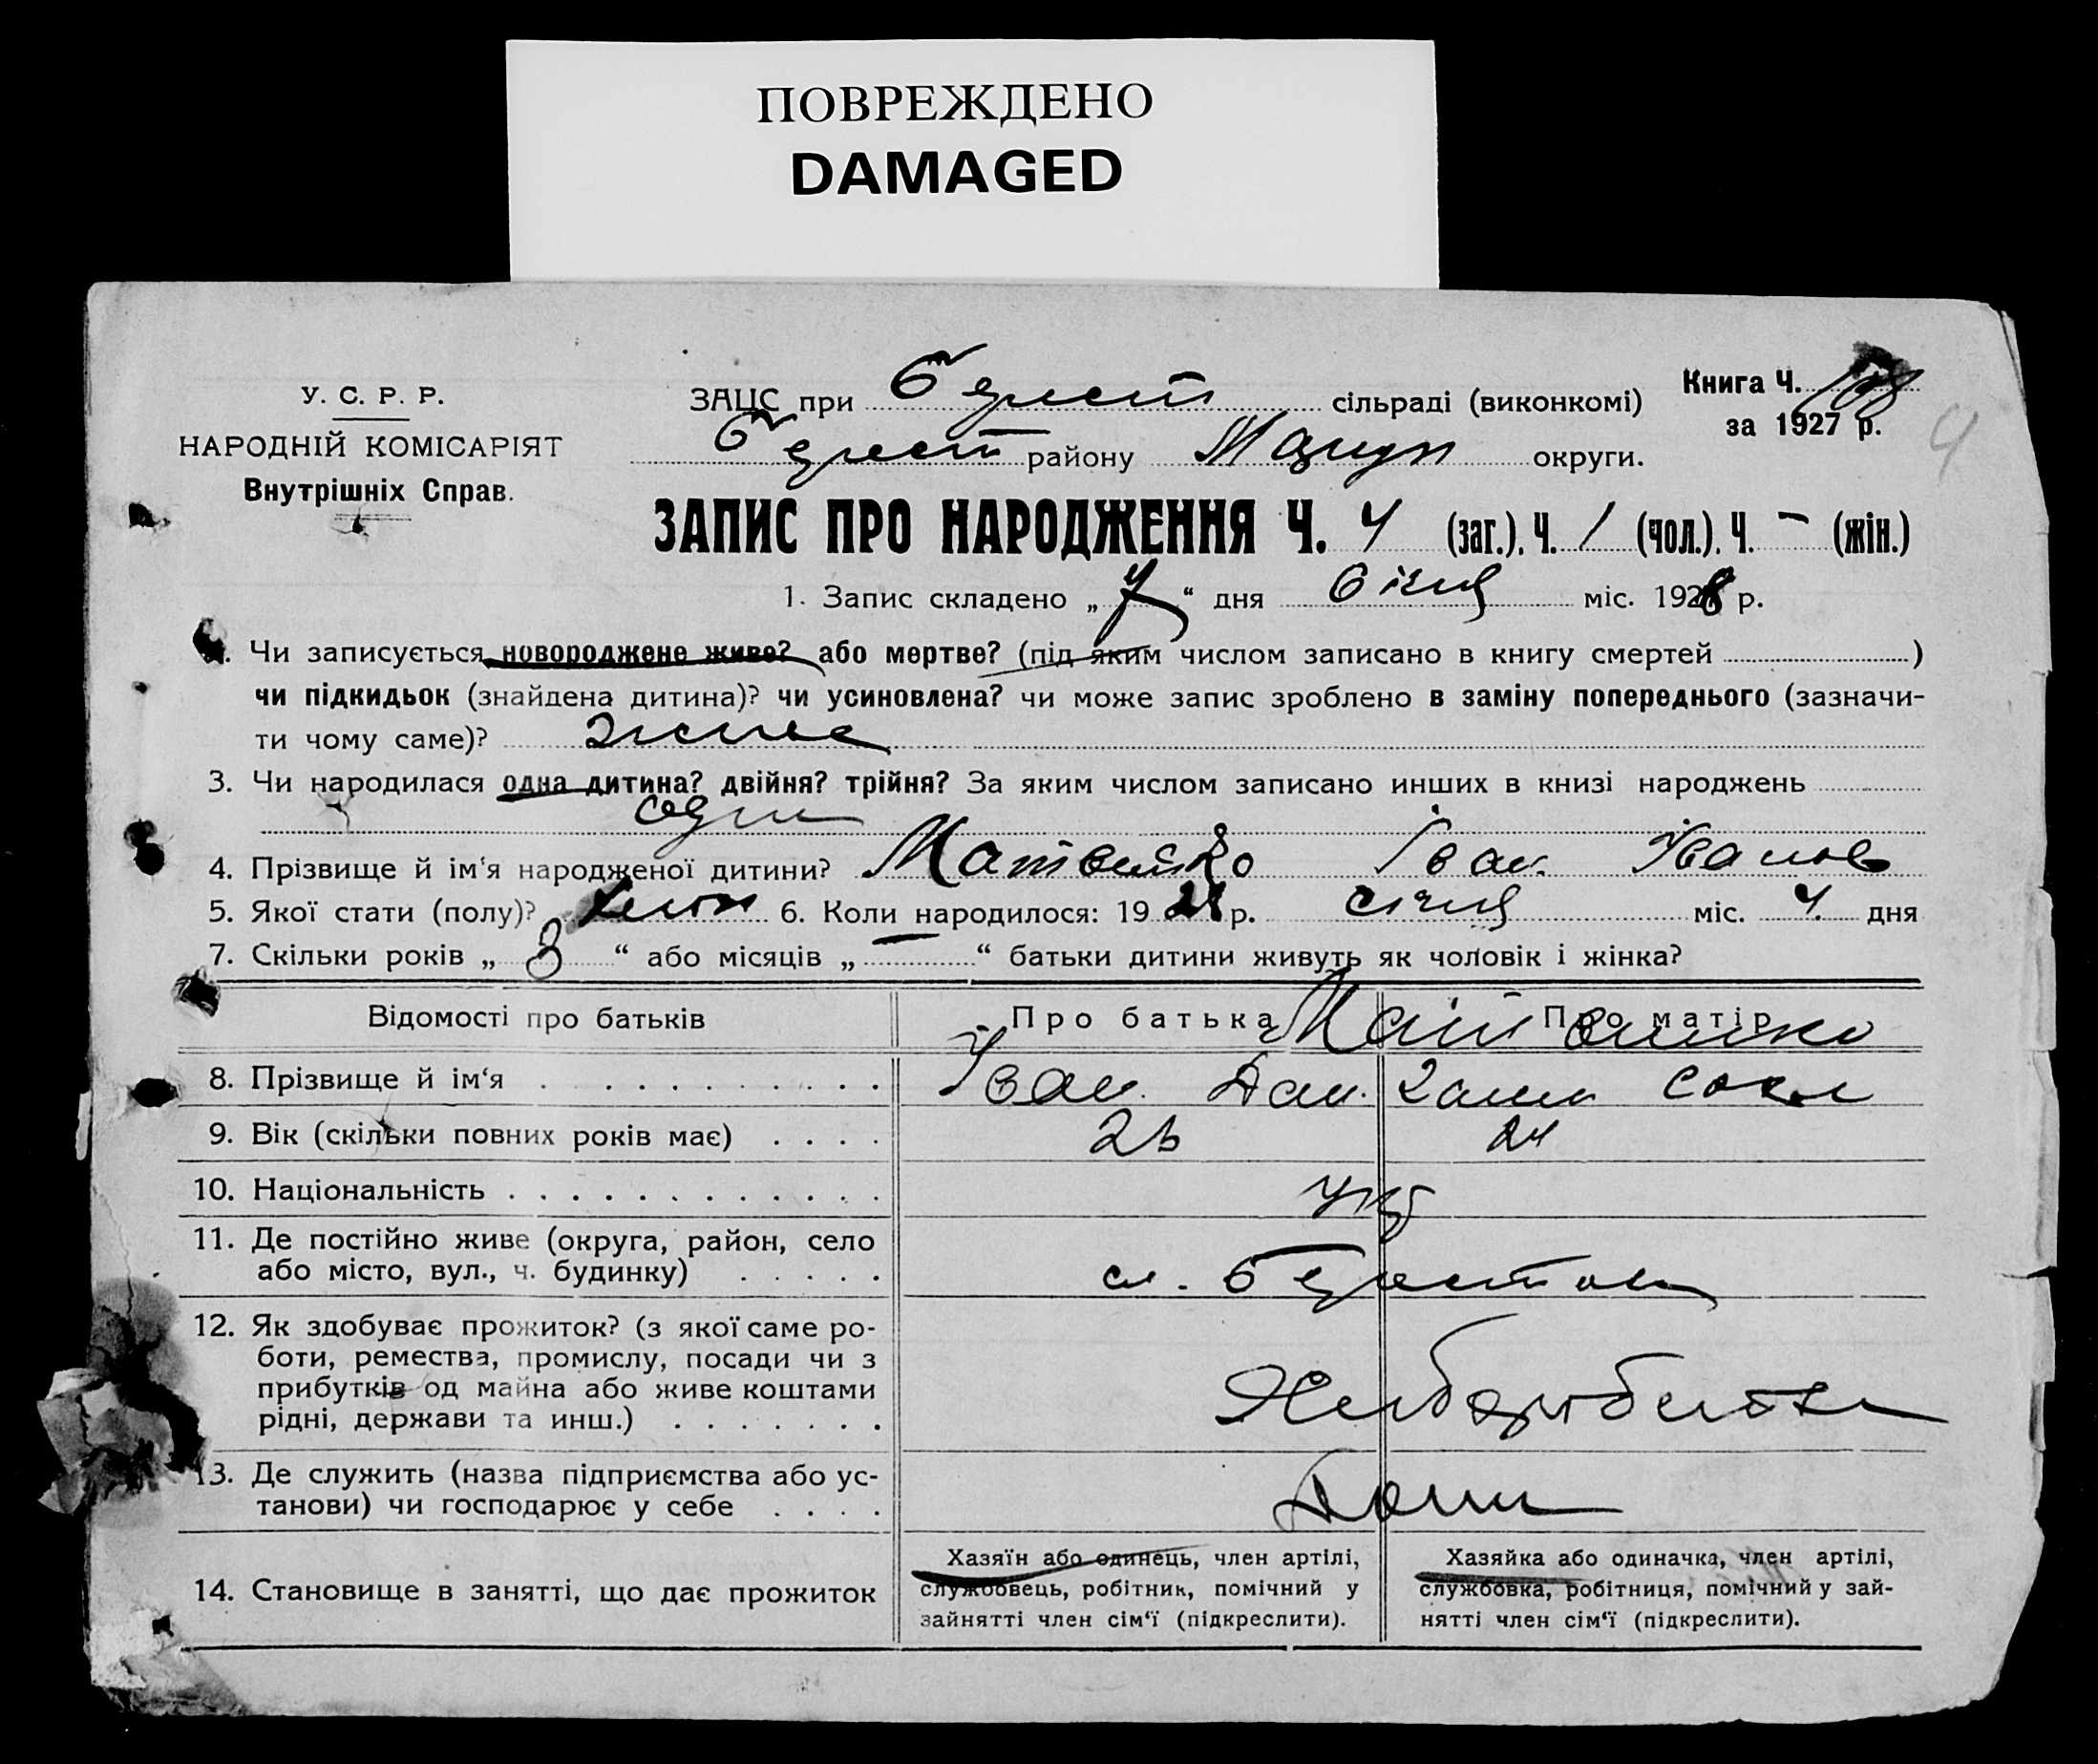 ПОВРЕЖДЕНО
DAMAGED
У. С. Р. Р.
НАРОДНІЙ КОМІСАРІЯТ
Внутрішніх Справ.
ЗАЦС при Берест сільраді (виконкомі)
Берест району Маріуп округи.
Книга Ч.
за 1927 р.
4
ЗАПИС ПРО НАРОДЖЕННЯ Ч. 4 (заг.). Ч. 1 (чол.). Ч. – (жін.)
1. Запис складено „ 7 “ дня Січня міс. 1928 р.
. Чи записується новороджене живе? або мертве? (під яким числом записано в книгу смертей )
чи підкидьок (знайдена дитина)? чи усиновлена? чи може запис зроблено в заміну попереднього (зазначи-
ти чому саме)? живе
3. Чи народилася одна дитина? двійня? трійня? За яким числом записано инших в книзі народжень
одна
4. Прізвище й ім‘я народженої дитини? Матвейко Іван Іванов
5. Якої стати (полу)? 6. Коли народилося: 19 28 р. січня міс. 4 дня
7. Скільки років „ 3 “ або місяців „ — “ батьки дитини живуть як чоловік і жінка?
Відомості про батьків Про батька Про матір
Матвейко
8. Прізвище й ім‘я Іван Дан.
9. Вік (скільки повних років має) 26 24
10. Національність укр
11. Де постійно живе (округа, район, село
або місто, вул., ч. будинку) с. Берестов
12. Як здобуває прожиток? (з якої саме ро-
боти, ремества, промислу, посади чи з
прибутків од майна або живе коштами
рідні, держави та инш.) Хлібороби
13. Де служить (назва підприємства або ус-
танови) чи господарює у себе Дома
14. Становище в занятті, що дає прожиток
Хазяїн або одинець, член артілі,
службовець, робітник, помічний у
зайнятті член сім‘ї (підкреслити).
Хазяйка або одиначка, член артілі,
службовка, робітниця, помічний у зай-
нятті член сім‘ї (підкреслити).